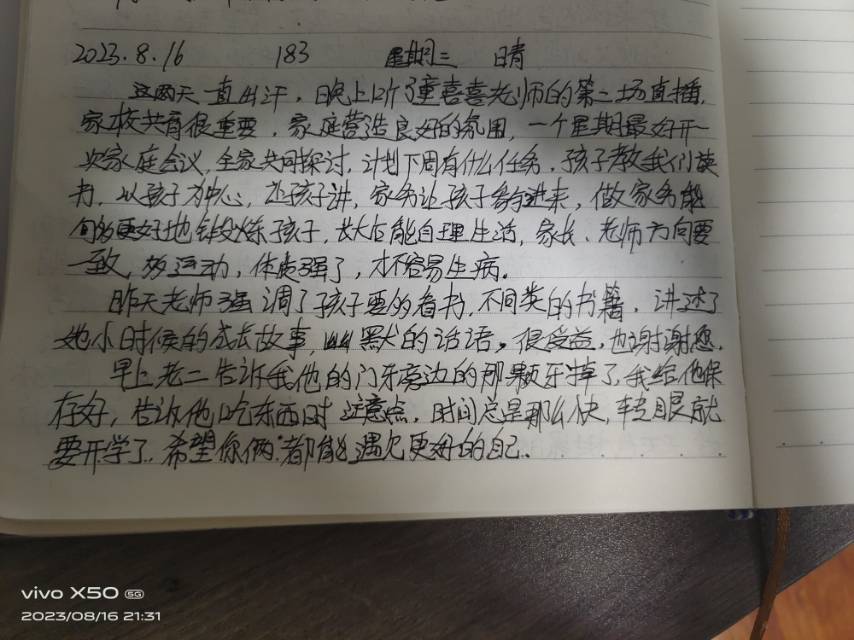 2023.8.16 183 星期三 晴
这两天一直出汗,晚上听了童喜喜老师的第二场直播,
家校共育很重要,家庭营造良好的氛围,一个星期最好开一
次家庭会议,全家共同探讨,计划下周有什么任务,孩子教我们读
书,以孩子为中心,让孩子讲,家务让孩子参与进来,做家务能
够更好地锻炼孩子,长大后能自理生活,家长、老师方向要
一致,多运动,体质强了,才不容易生病。
昨天老师强调了孩子要多看书,不同类的书籍,讲述了
她小时候的成长故事,幽默的话语,很受益,也谢谢您.
早上老二告诉我他的门牙旁边的那颗牙掉了,我给他保
存好,告诉他吃东西时注意点,时间总是那么快,转眼就
要开学了.希望你俩都能遇见更好的自己.
vivo X50 5G
2023/08/16 21:31